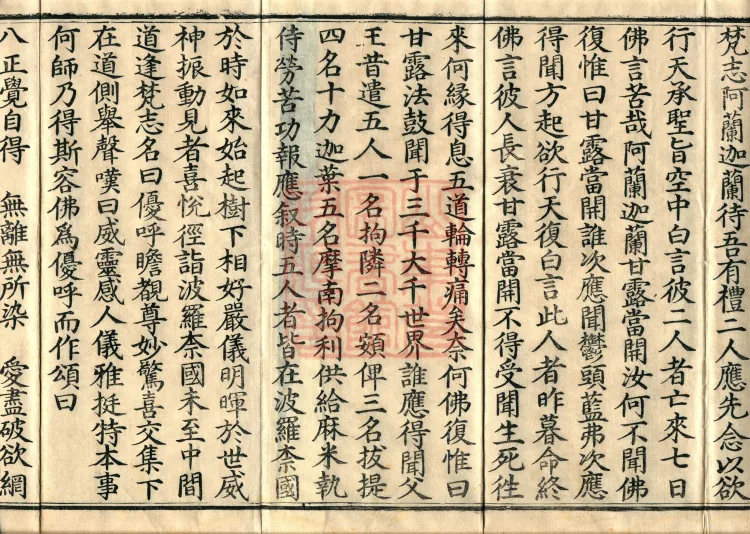 梵志阿蘭迦蘭待吾有禮二人應先念以欲
行天承聖旨空中白言彼二人者亡來七日
佛言苦哉阿蘭迦蘭甘露當開汝何不聞佛
復惟曰甘露當開誰次應聞鬱頭藍弗次應
得聞方起欲行天復白言此人者昨暮命終
佛言彼人長衰甘露當開不得受聞生死徃
來何緣得息五道輪轉痛矣柰何佛復惟曰
甘露法鼓聞于三千大千世界誰應得聞父
王昔遣五人一名拘隣二名頞俾三名拔提
四名十力迦葉五名摩南拘利供給麻米執
侍勞苦功報應敘時五人者皆在波羅柰國
於時如來始起樹下相好嚴儀明暉於世威
神振動見者喜悅徑詣波羅柰國未至中間
道逢梵志名曰優呼瞻覩尊妙驚喜交集下
在道側舉聲嘆曰威靈感人儀雅挺特本事
何師乃得斯容佛爲優呼而作頌曰
八正覺自得　無離無所染　愛盡破欲網